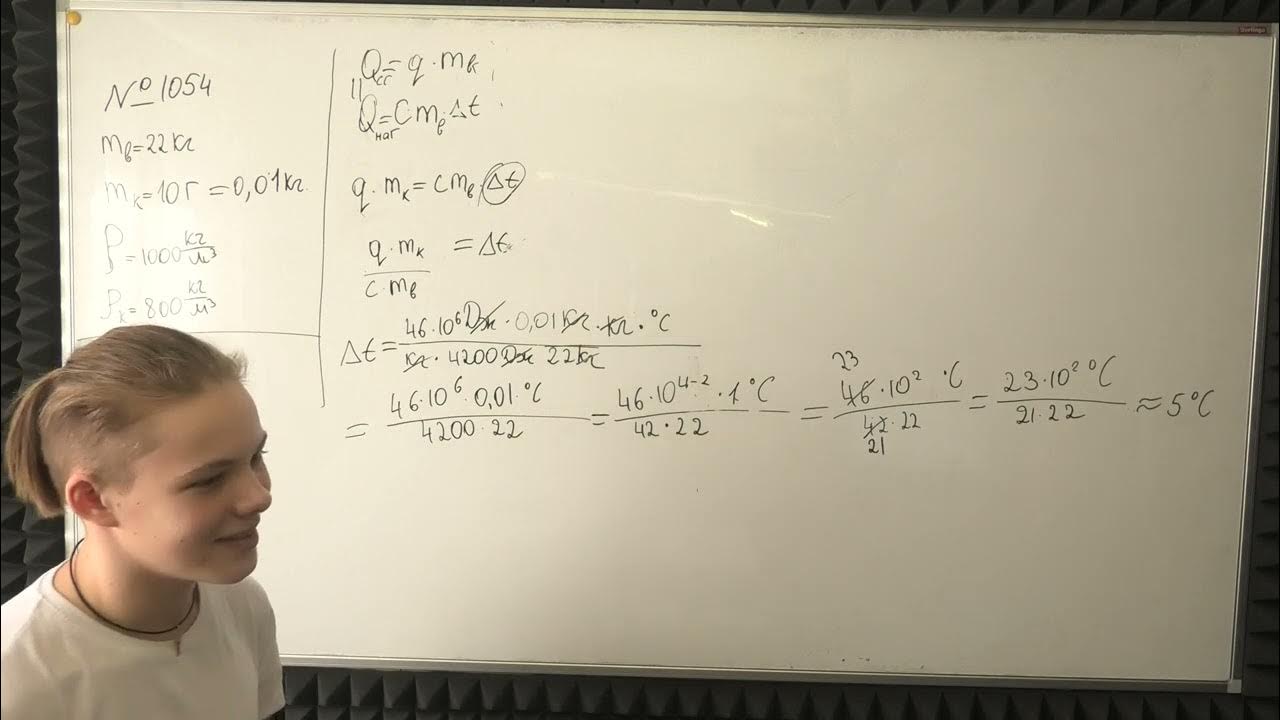 № 1054
m_в = 22 кг
m_к = 10 г = 0,01 кг.
ρ = 1000 кг/м³
ρ_к = 800 кг/м³
Q_сг = q · m_к
||
Q_наг = C m_в Δt
q · m_к = c m_в Δt
q · m_к / c · m_в = Δt
Δt = 46 · 10⁶ Дж · 0,01 кг · кг · °C / кг · 4200 Дж 22 кг
= 46 · 10⁶ · 0,01 · °C / 4200 · 22 = 46 · 10⁴⁻² · 1 °C / 42 · 22 = 23 46 · 10² °C / 42 · 22 21 = 23 · 10² °C / 21 · 22 ≈ 5 °C